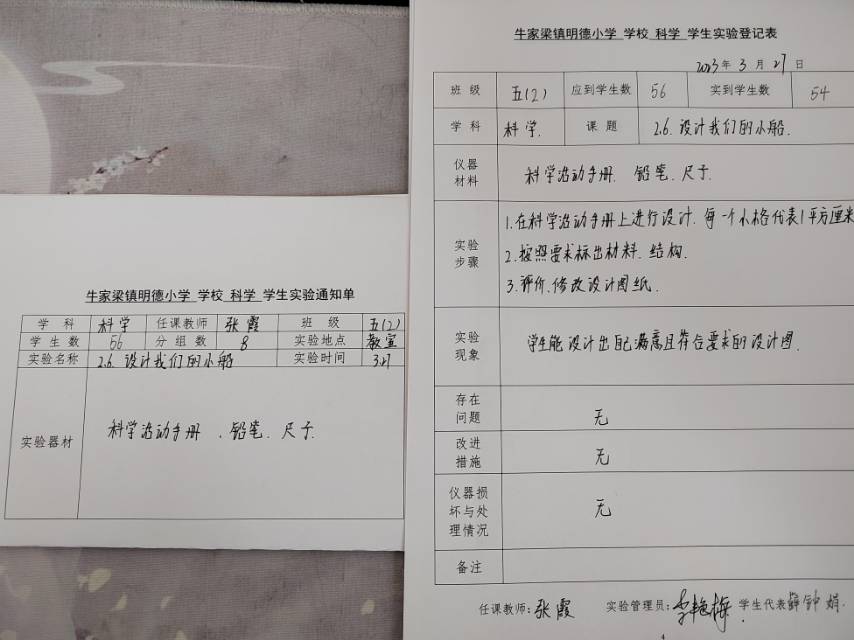 牛家梁镇明德小学 学校 科学 学生实验通知单
学科 科学 任课教师 张霞 班级 五(2)
学生数 56 分组数 8 实验地点 教室
实验名称 2.6. 设计我们的小船 实验时间 3.27
实验器材 科学活动手册、铅笔、尺子.
牛家梁镇明德小学 学校 科学 学生实验登记表
2023年 3月 27日
班级 五(2) 应到学生数 56 实到学生数 54
学科 科学. 课题 2.6. 设计我们的小船.
仪器材料 科学活动手册. 铅笔. 尺子.
实验步骤 1.在科学活动手册上进行设计.每一个小格代表1平方厘米
2.按照要求标出材料.结构.
3.评价.修改设计图纸.
实验现象 学生能设计出自己满意且符合要求的设计图.
存在问题 无
改进措施 无
仪器损坏与处理情况 无
备注
任课教师:张霞 实验管理员:李艳梅 学生代表